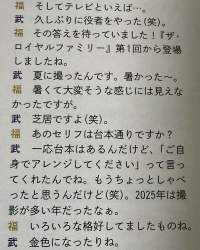 福 そしてテレビといえば…。
武 久しぶりに役者をやった(笑)。
福 その答えを待っていました!『ザ・
ロイヤルファミリー』第1回から登場
しましたね。
武 夏に撮ったんです。暑かった~。
福 暑くて大変そうな感じには見えな
かったですが。
武 芝居ですよ(笑)。
福 あのセリフは台本通りですか?
武 一応台本はあるんだけど、「ご自
身でアレンジしてください」って言っ
てくれたんでね。もうちょっとしゃべ
ったと思うんだけど(笑)。2025年は撮
影が多い年だったなぁ。
福 いろいろな格好してましたものね。
武 金色になったりね。